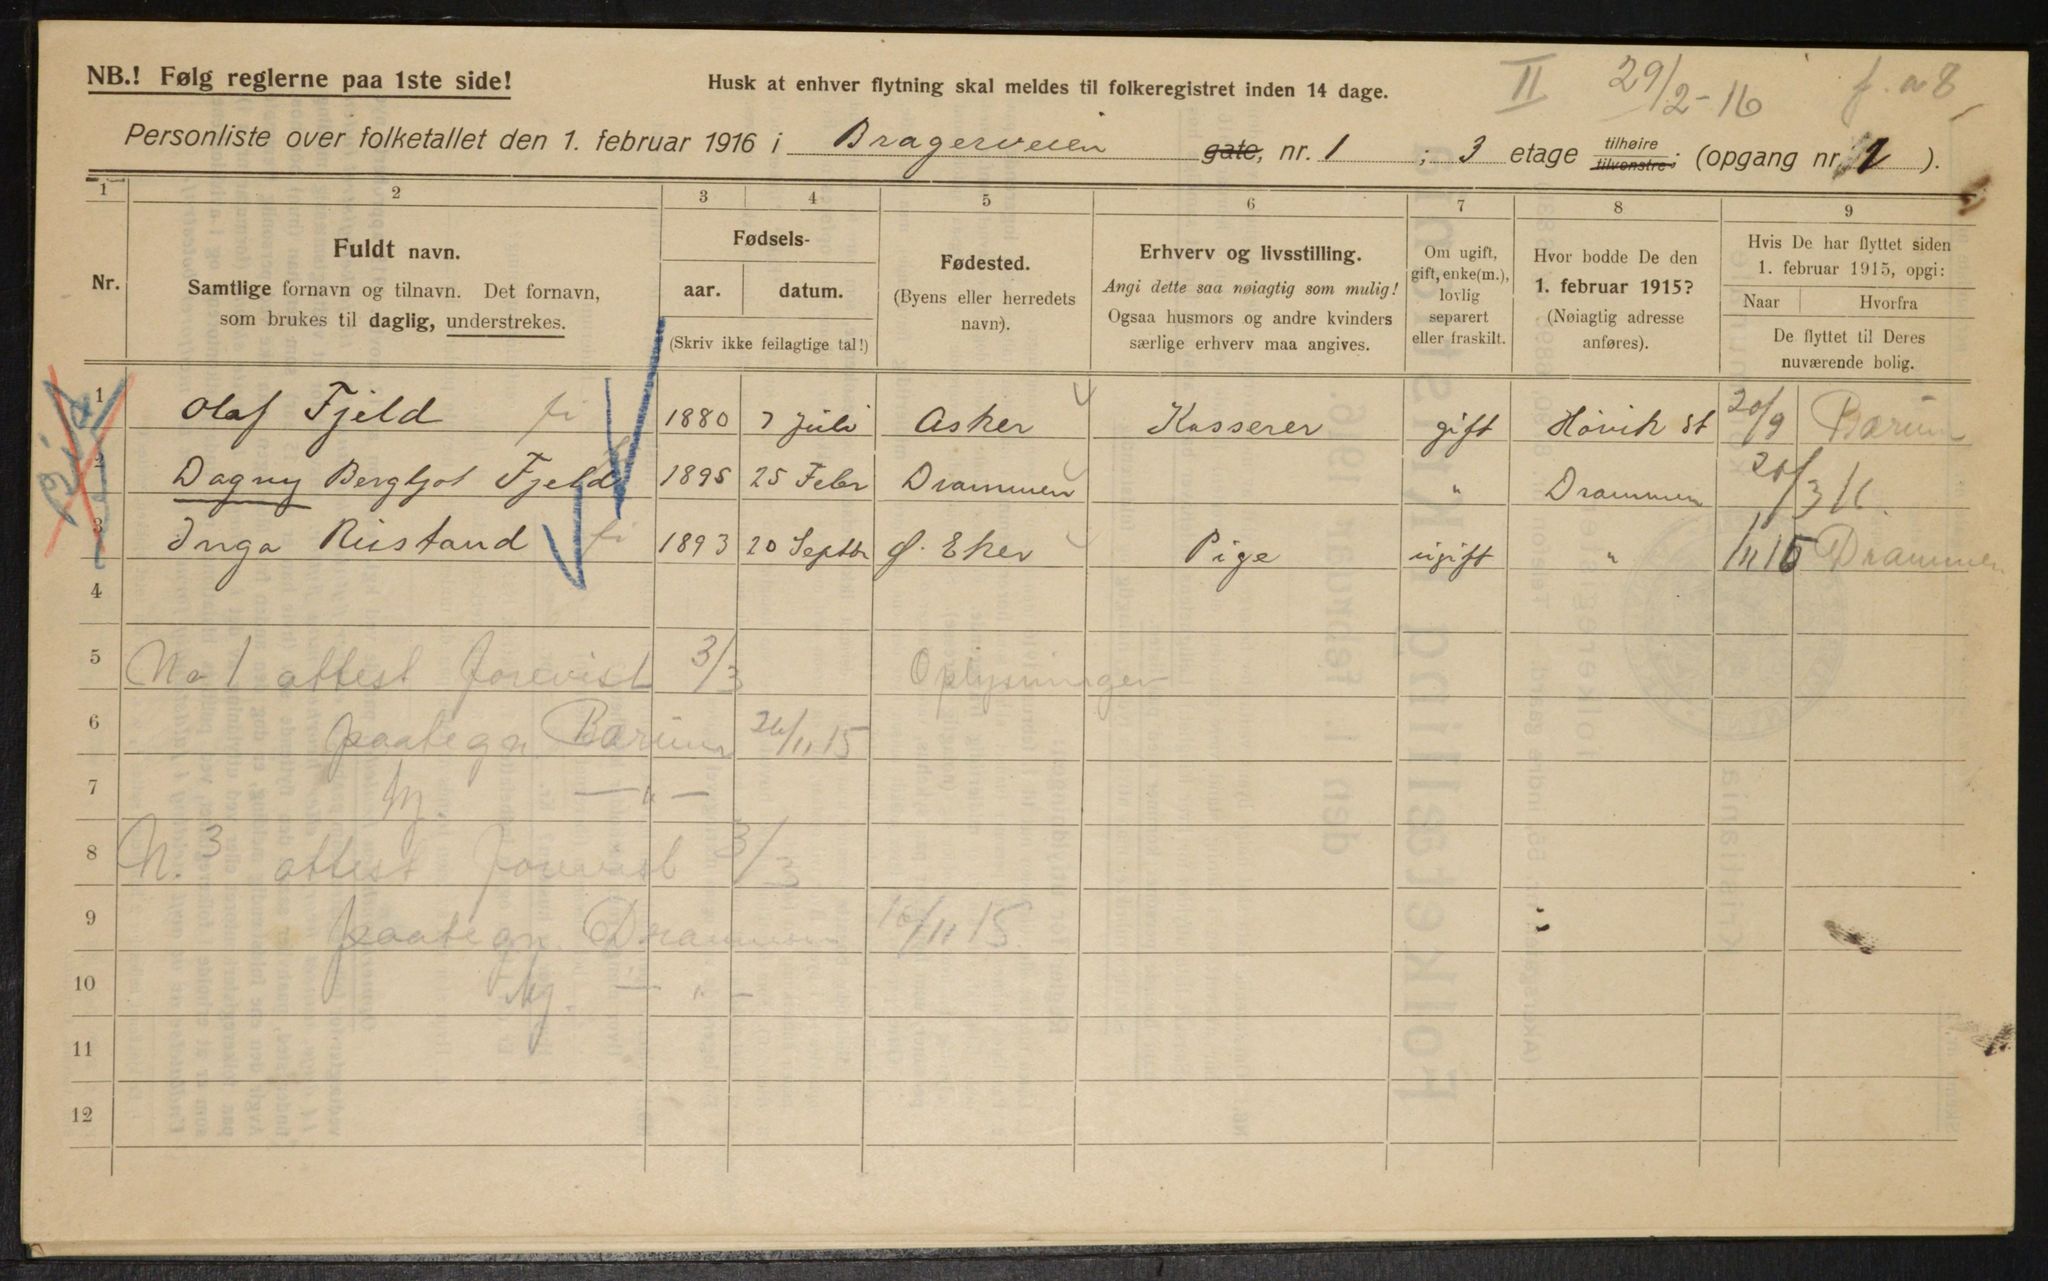 NB.! Følg reglerne paa 1ste side!
Husk at enhver flytning skal meldes til folkeregistret inden 14 dage.
II 29/2-16
Personliste over folketallet den 1. februar 1916 i Bragerveien gate, nr. 1 ; 3 etage tilhøire tilvenstre; (opgang nr. 2 ).
1 2 3 4 5 6 7 8 9
Nr.
Fuldt navn.
Samtlige fornavn og tilnavn. Det fornavn,
som brukes til daglig, understrekes.
Fødsels-
aar. datum.
(Skriv ikke feilagtige tal!)
Fødested.
(Byens eller herredets
navn).
Erhverv og livsstilling.
Angi dette saa nøiagtig som mulig!
Ogsaa husmors og andre kvinders
særlige erhverv maa angives.
Om ugift,
gift, enke(m.),
lovlig
separert
eller fraskilt.
Hvor bodde De den
1. februar 1915?
(Nøiagtig adresse
anføres).
Hvis De har flyttet siden
1. februar 1915, opgi:
Naar Hvorfra
De flyttet til Deres
nuværende bolig.
1 Olaf Fjeld fi 1880 7 Juli Asker Kasserer gift Høvik St 20/9 Bærum
2 Dagny Bergljot Fjeld 1895 25 Febr Drammen " Drammen 20/3 16.
3 Inga Ristand fi 1893 20 Septbr Ø. Eker Pige ugift " 1/11 15 Drammen
4
5 No 1 attest forevist 3/3 Oplysninger
6 paategn Bærum 26/11 15
7 — " —
8 N. 3 attest forevist 3/3
9 paategn Drammen 10/11 15
10 — " —
11
12